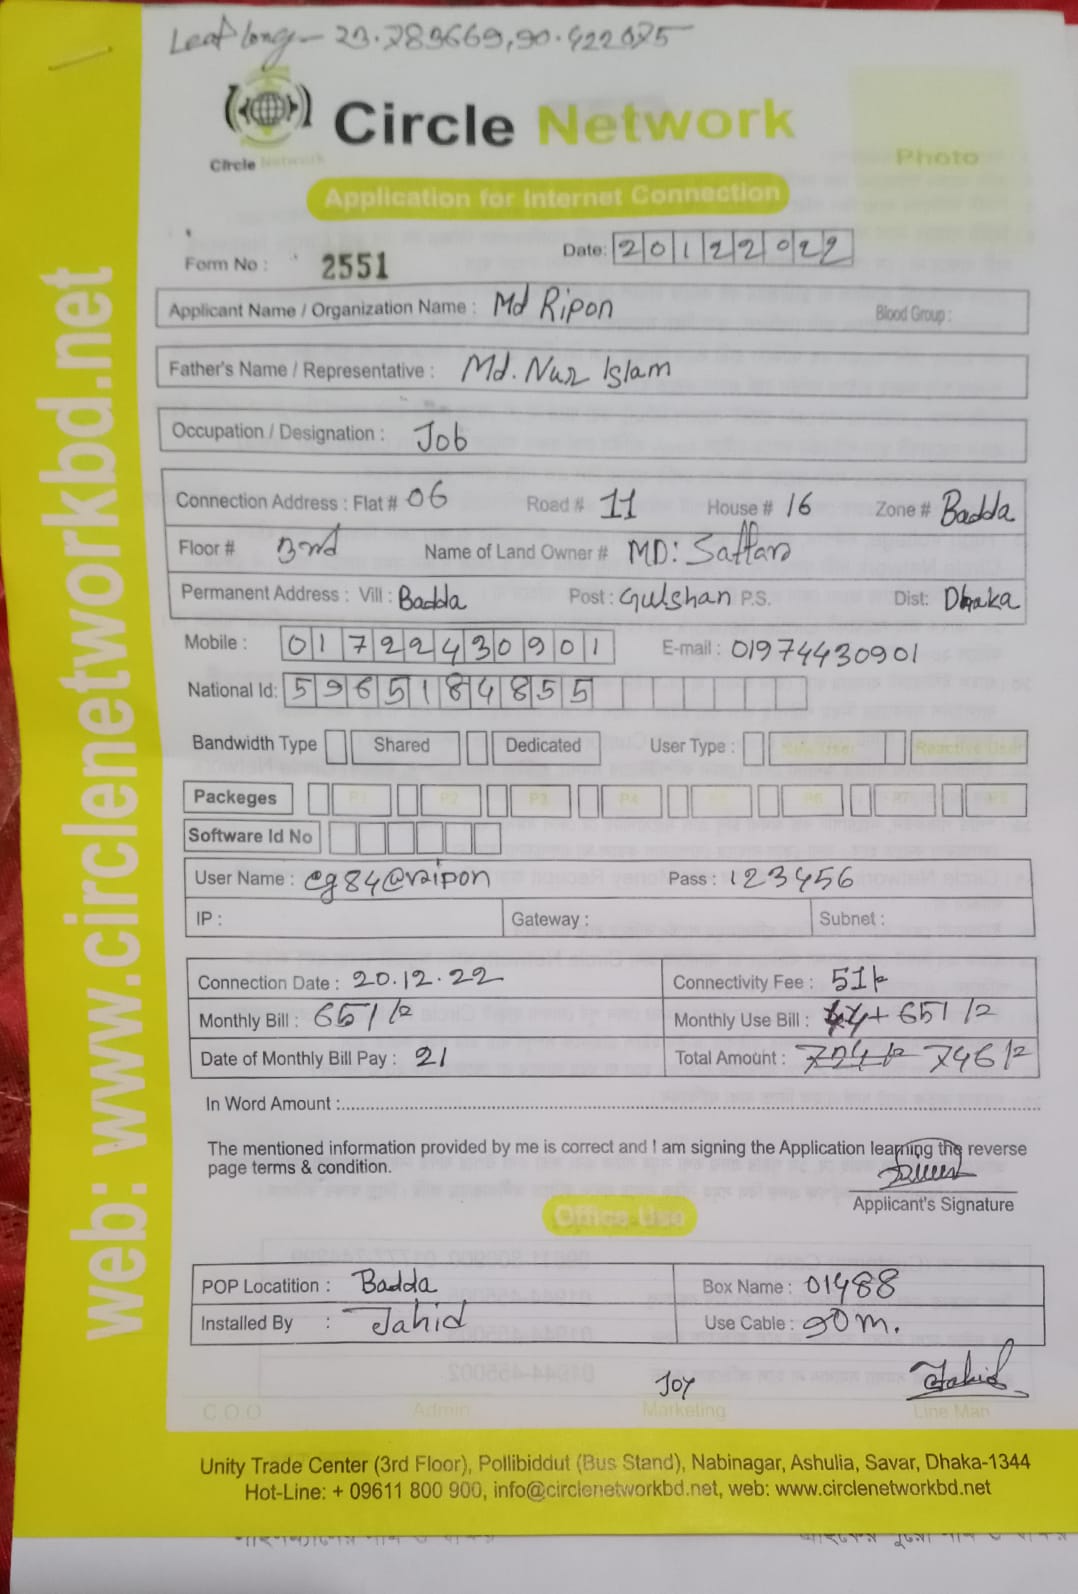 Leat long - 23.789669,90.422075
Circle Network
Circle Network
Photo
Application for Internet Connection
Form No : 2551
Date: 20122022
Applicant Name / Organization Name : Md Ripon Blood Group :
Father's Name / Representative : Md. Nur Islam
Occupation / Designation : Job
Connection Address : Flat # 06 Road # 11 House # 16 Zone # Badda
Floor # 3rd Name of Land Owner # MD: Sattar
Permanent Address : Vill : Badda Post : Gulshan P.S. Dist: Dhaka
Mobile : 01722430901 E-mail : 01974430901
National Id: 5965184855
Bandwidth Type Shared Dedicated User Type : New User Reactive User
Packeges P1 P2 P3 P4 P5 P6 P7
Software Id No
User Name : cg84@ripon Pass : 123456
IP : Gateway : Subnet :
Connection Date : 20.12.22 Connectivity Fee : 51/-
Monthly Bill : 651/- Monthly Use Bill : 44+651/-
Date of Monthly Bill Pay : 21 Total Amount : 724/- 746/-
In Word Amount :
The mentioned information provided by me is correct and I am signing the Application learning the reverse
page terms & condition.
Applicant's Signature
Office Use
POP Locatition : Badda Box Name : 01488
Installed By : Jahid Use Cable : 90m.
Joy Jahid
C.O.O Admin Marketing Line Man
Unity Trade Center (3rd Floor), Pollibiddut (Bus Stand), Nabinagar, Ashulia, Savar, Dhaka-1344
Hot-Line: + 09611 800 900, info@circlenetworkbd.net, web: www.circlenetworkbd.net
web: www.circlenetworkbd.net